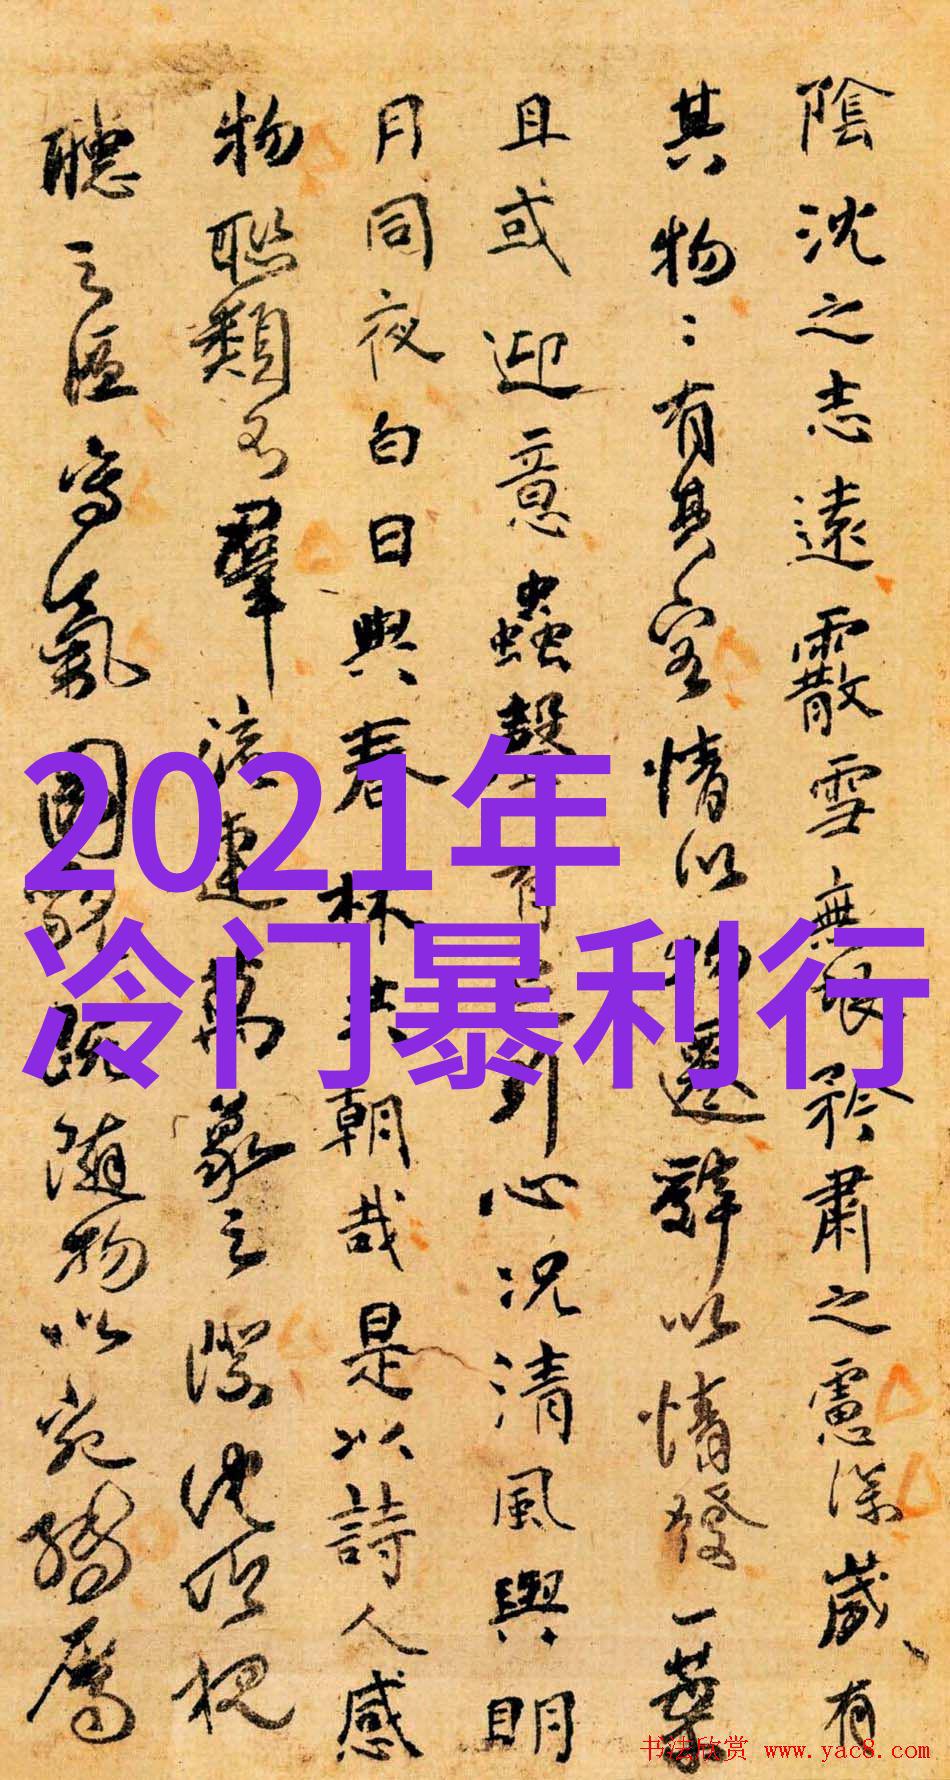 陰沈之志遠霰雪無垠矜肅之慮深歲有
其物物有其容情以物遷辭以情發一葉
且或迎意蟲聲有引心況清風與明
月同夜白日與春林共朝哉是以詩人感
物聯類不羣流連萬象之際沈吟視
聽之區寫氣圖貌既隨物以宛轉屬
2021年
冷门暴利行
书法欣赏 www.yac8.com